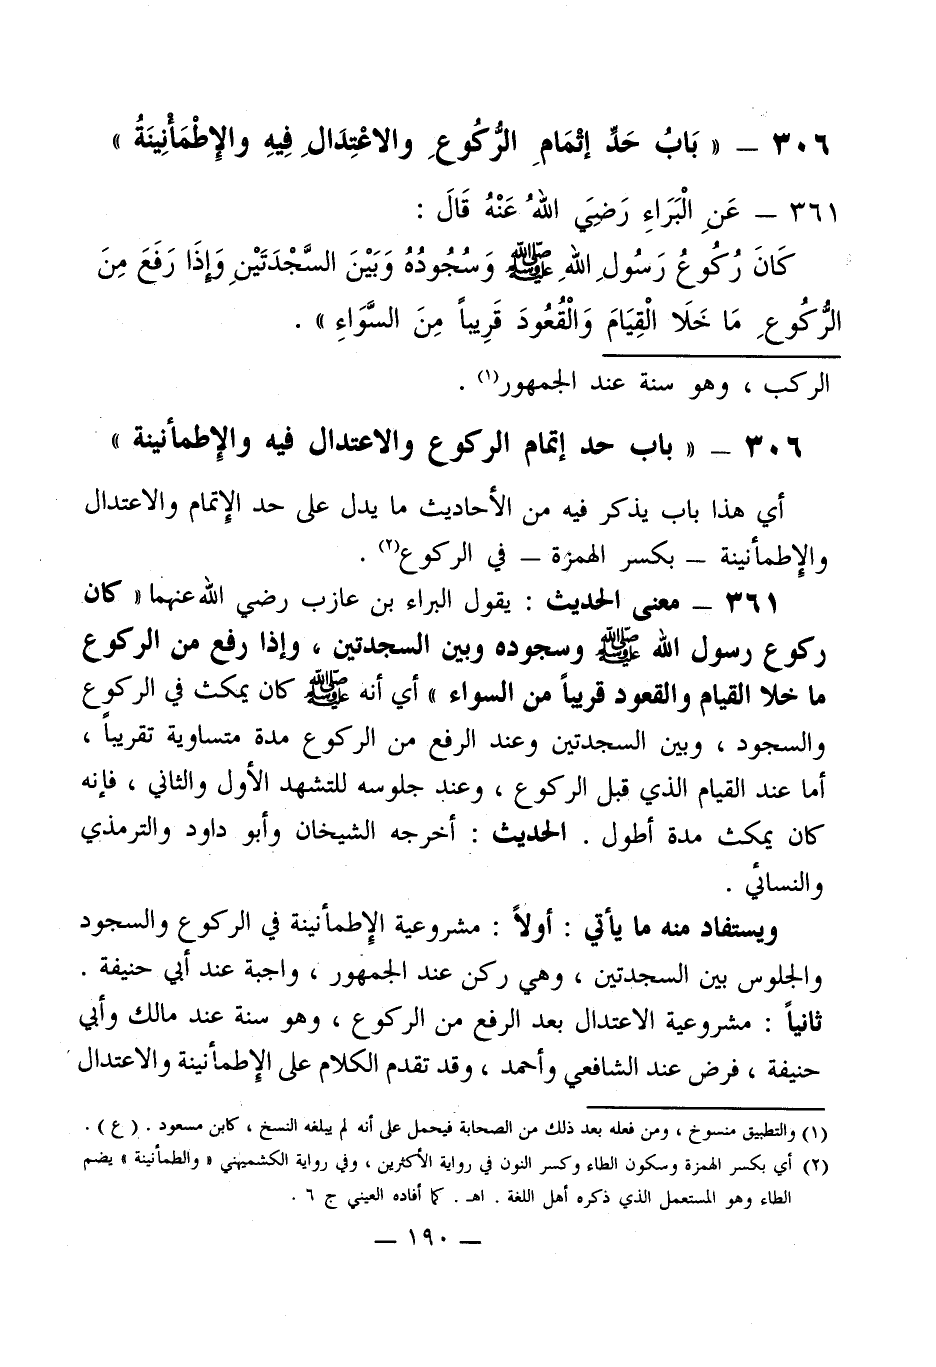 ٣٠٦ ــ « بَابُ حَدِّ إتْمَامِ الرُّكُوعِ والاعْتِدَالِ فِيهِ والإِطْمَأْنِينَةُ »
٣٦١ ــ عَنِ الْبَرَاءِ رَضِيَ اللهُ عَنْهُ قَالَ :
كَانَ رُكُوعُ رَسُولِ اللهِ ﷺ وَسُجُودُهُ وَبَيْنَ السَّجْدَتَيْنِ وَإِذَا رَفَعَ مِنَ
الرُّكُوعِ مَا خَلَا الْقِيَامَ وَالْقُعُودَ قَرِيباً مِنَ السَّوَاءِ » .
الركب ، وهو سنة عند الجمهور(١) .
٣٠٦ ــ « باب حد إتمام الركوع والاعتدال فيه والإطمأنينة »
أي هذا باب يذكر فيه من الأحاديث ما يدل على حد الإتمام والاعتدال
والإطمأنينة ــ بكسر الهمزة ــ في الركوع(٢) .
٣٦١ ــ معنى الحديث : يقول البراء بن عازب رضي الله عنهما « كان
ركوع رسول الله ﷺ وسجوده وبين السجدتين ، وإذا رفع من الركوع
ما خلا القيام والقعود قريباً من السواء » أي أنه ﷺ كان يمكث في الركوع
والسجود ، وبين السجدتين وعند الرفع من الركوع مدة متساوية تقريباً ،
أما عند القيام الذي قبل الركوع ، وعند جلوسه للتشهد الأول والثاني ، فإنه
كان يمكث مدة أطول . الحديث : أخرجه الشيخان وأبو داود والترمذي
والنسائي .
ويستفاد منه ما يأتي : أولاً : مشروعية الإطمأنينة في الركوع والسجود
والجلوس بين السجدتين ، وهي ركن عند الجمهور ، واجبة عند أبي حنيفة .
ثانياً : مشروعية الاعتدال بعد الرفع من الركوع ، وهو سنة عند مالك وأبي
حنيفة ، فرض عند الشافعي وأحمد ، وقد تقدم الكلام على الإطمأنينة والاعتدال
(١) والتطبيق منسوخ ، ومن فعله بعد ذلك من الصحابة فيحمل على أنه لم يبلغه النسخ ، كابن مسعود . ( ع ) .
(٢) أي بكسر الهمزة وسكون الطاء وكسر النون في رواية الأكثرين ، وفي رواية الكشميهني « والطمأنينة » بضم
الطاء وهو المستعمل الذي ذكره أهل اللغة . اهـ . كما أفاده العيني ج ٦ .
ــ ١٩٠ ــ